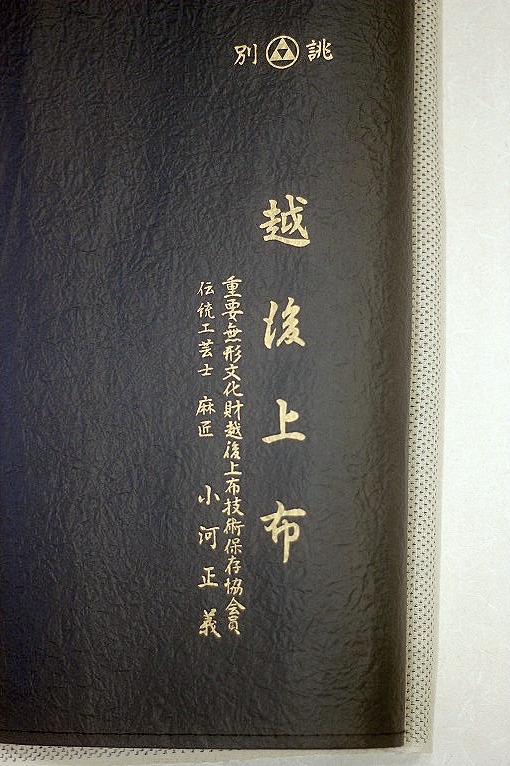 別誂
越後上布
重要無形文化財越後上布技術保存協会員
伝統工芸士 麻匠 小河正義